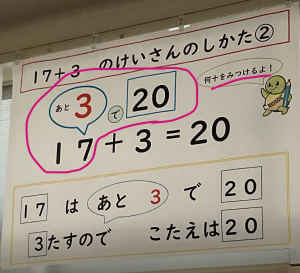 17+3 のけいさんのしかた②
あと 3 で 20
何十をみつけるよ！
17+3=20
17 は あと 3 で 20
3たすので こたえは20